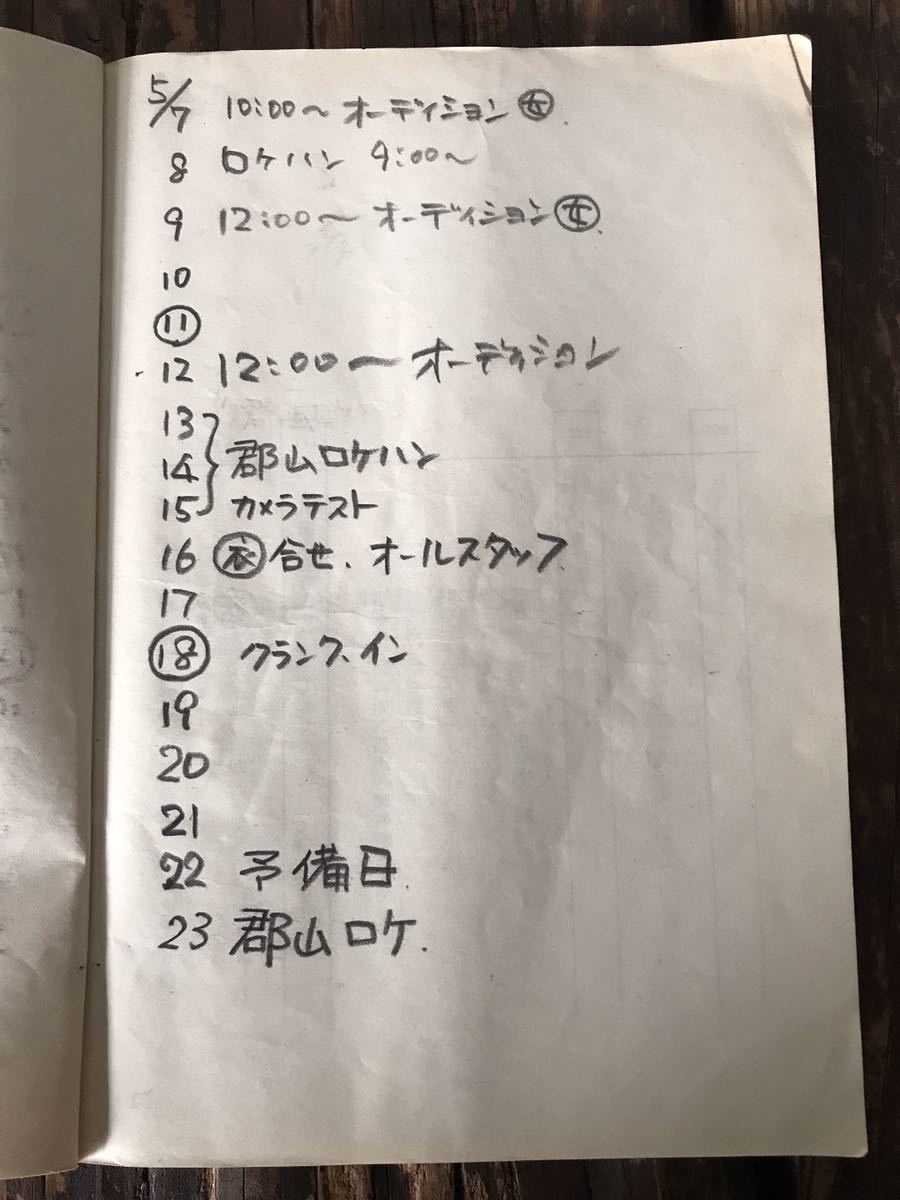 5/7 10:00〜 オーディション ㊛.
8 ロケハン 9:00〜
9 12:00〜 オーディション ㊛.
10
⑪
12 12:00〜 オーディション
13
14 郡山ロケハン
15 カメラテスト
16 衣合せ、オールスタッフ.
17
⑱ クランク、イン
19
20
21
22 予備日.
23 郡山ロケ.